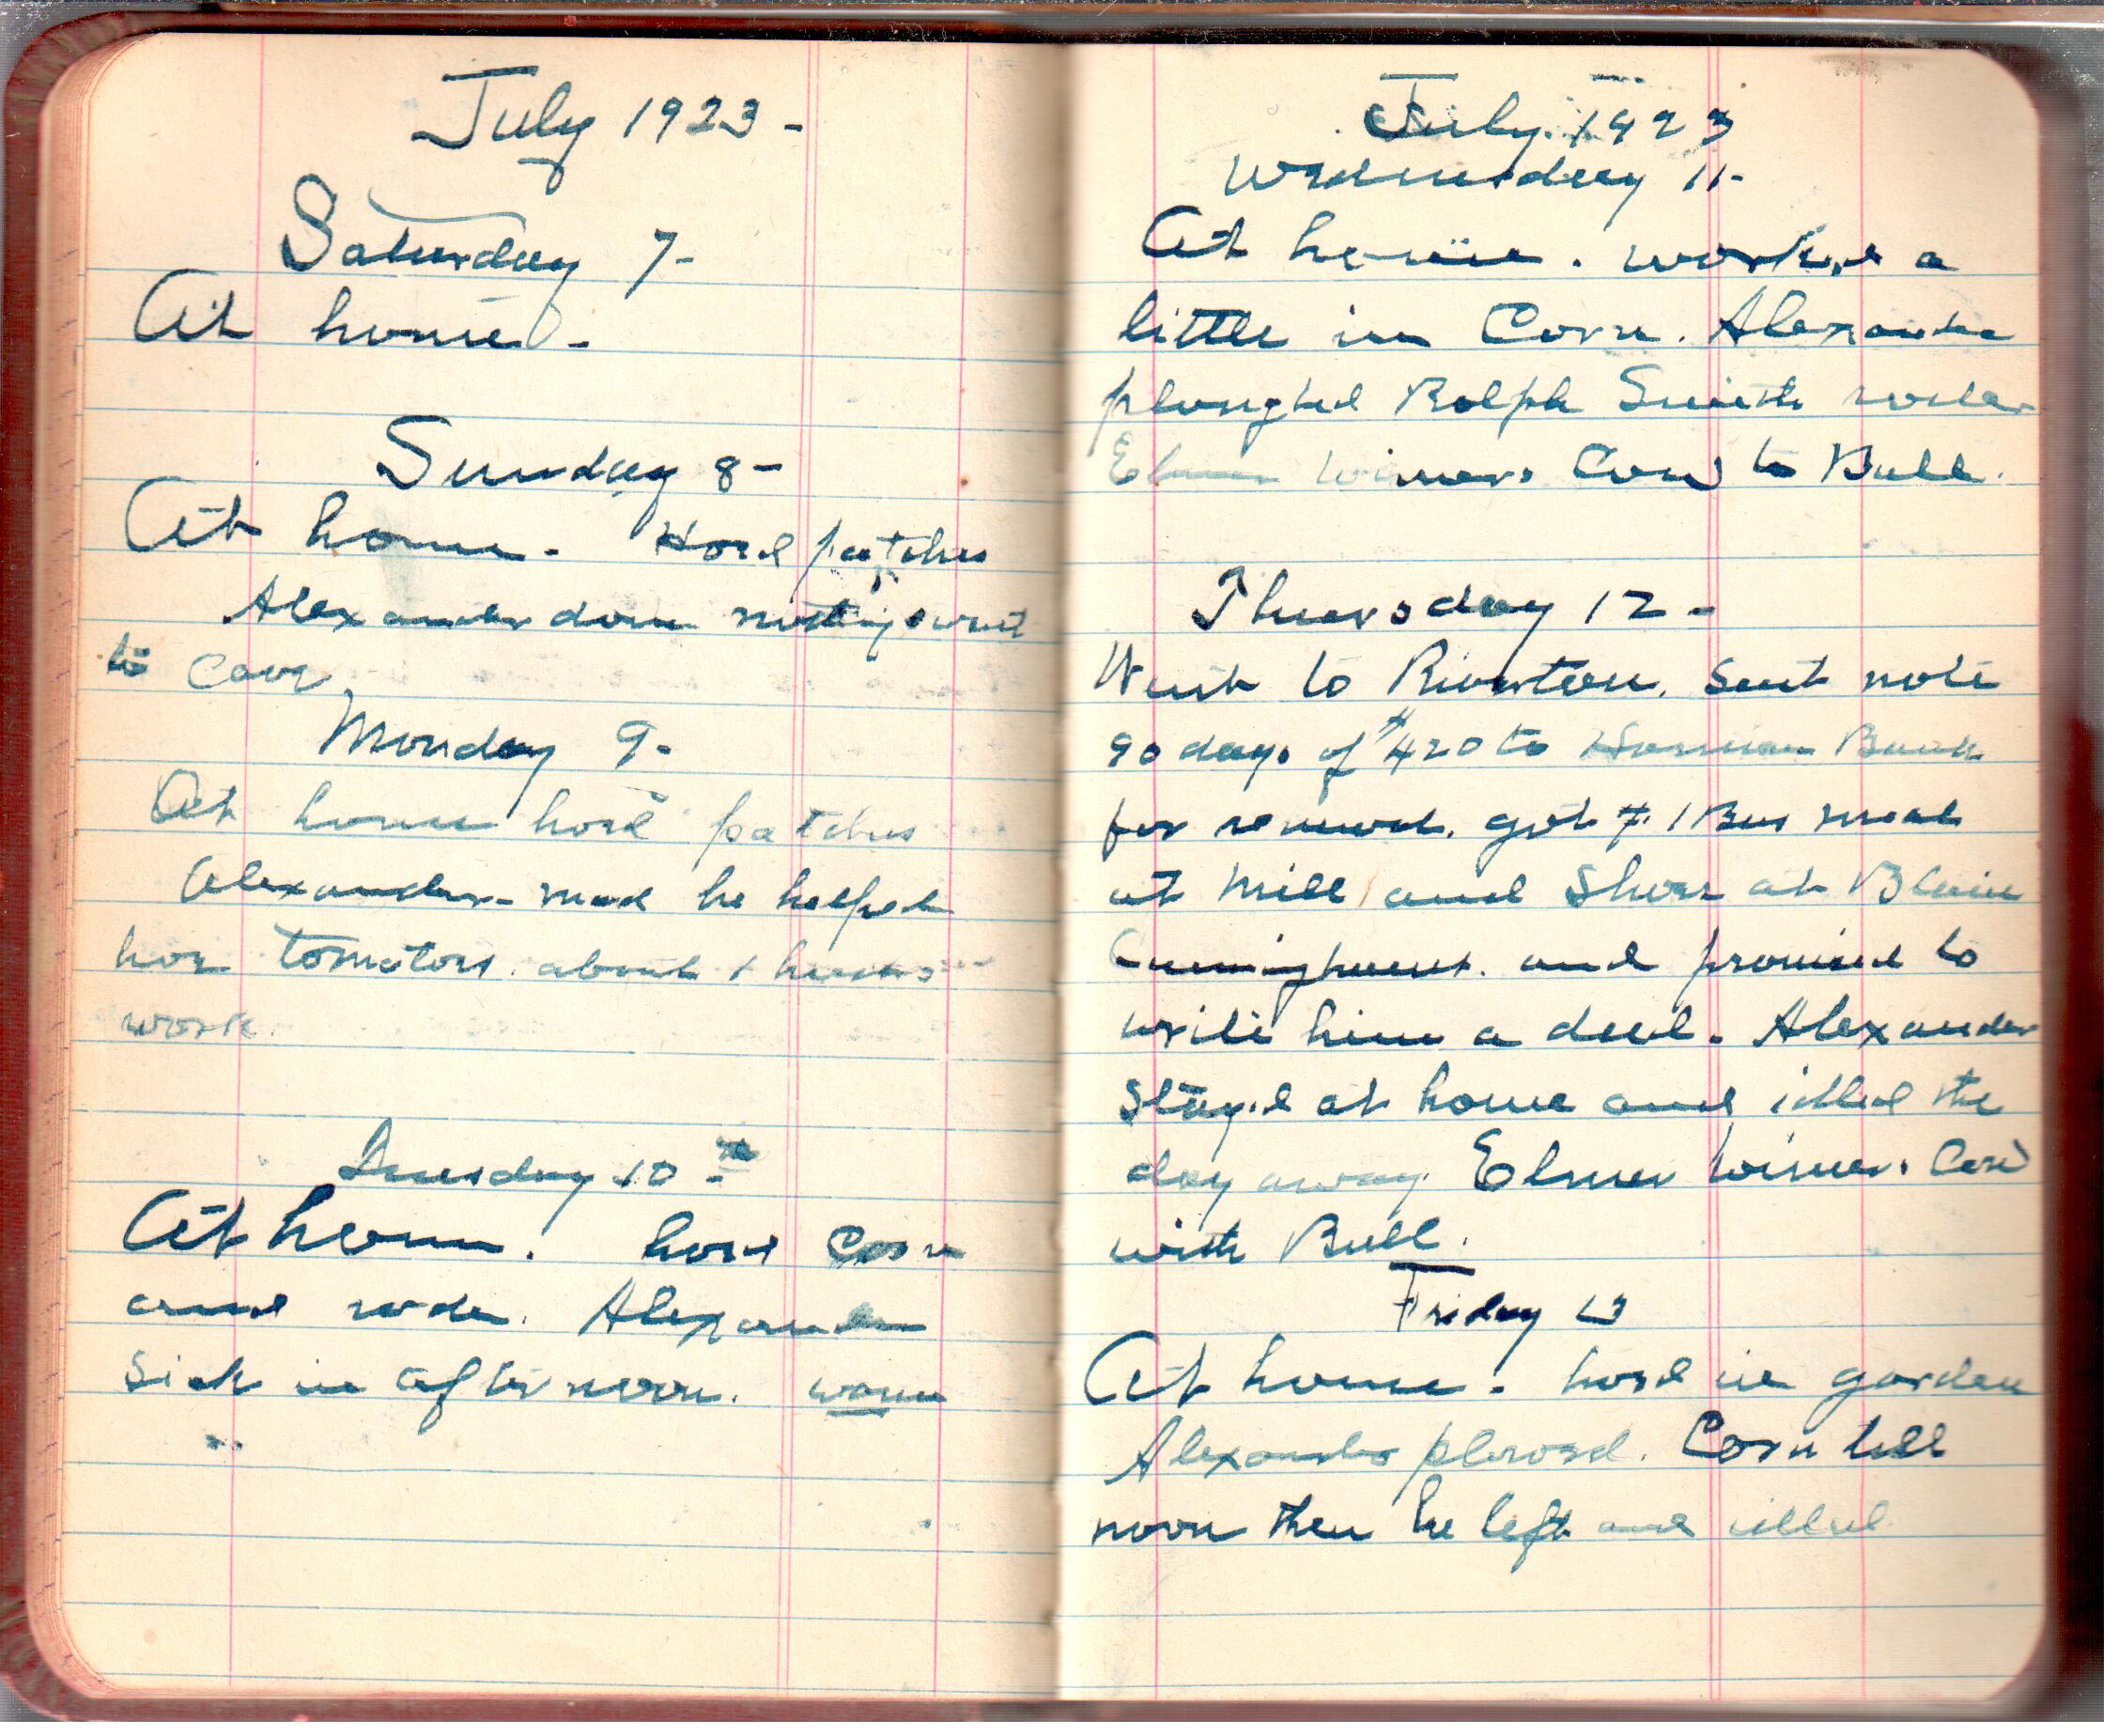 July 1923 -
Saturday 7-
At home -
Sunday 8-
At home. Hoed patches
Alexander done nothing & went
to Cave
Monday 9-
At home hoed patches
Alexander - mad he helped
hoe tomatoes about 1 hours
work.
Tuesday 10 th
At home. hoed Corn
and Alexander
Sick in afternoon. warm
July 1923
Wednesday 11-
At home. worked a
little in Corn. Alexander
ploughed Ralph Smith
Elmer Wimers Cow to Bull.
Thursday 12-
Went to Riverton. Sent note
90 days of $420 to Bank
for renewal. got 1 Bus meal
at Mill and Shoes at Blain
Cunninghams. and promised to
write him a deed. Alexander
Stayed at home and idled the
day away. Elmer Wimers Cow
with Bull.
Friday 13
At home. hoed in garden
Alexander plowed. Corn till
noon then he left and idled